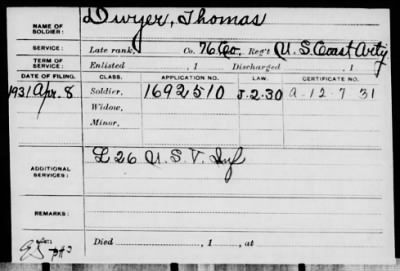 NAME OF SOLDIER: Dwyer, Thomas
SERVICE: Late rank, Co. 76 Co. Reg't U. S. Coast Arty
TERM OF SERVICE: Enlisted , 1 Discharged , 1
DATE OF FILING. CLASS. APPLICATION NO. LAW. CERTIFICATE NO.
1931 Apr. 8 Soldier, 1692510 J.2.30 a-12-7 31
Widow,
Minor,
ADDITIONAL SERVICES: L 26 U.S.V. Inf
REMARKS:
Died , 1 , at